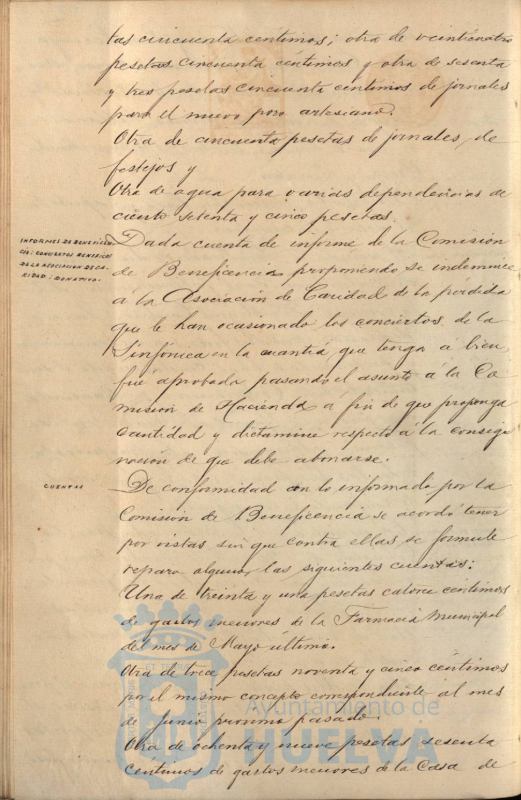 tas cincuenta centimos; otra de veinticuatro
pesetas cincuenta centimos y otra de sesenta
y tres pesetas cincuenta centimos de jornales
para el nuevo pozo artesiano.
Otra de cincuenta pesetas de jornales, de
festejos y
Otra de agua para varias dependencias de
ciento setenta y cinco pesetas.
INFORMES DE BENEFICEN
CIA: CONCIERTOS BENEFICOS
DE LA ASOCIACION DE CA-
RIDAD: DONATIVO.
Dada cuenta de informe de la Comisión
de Beneficencia proponiendo se indemnice
á la Asociación de Caridad de la perdida
que le han ocasionado los conciertos de la
Sinfónica en la cuantía que tenga á bien,
fué aprobada pasando el asunto á la Co
misión de Hacienda á fin de que proponga
cantidad y dictamine respecto á la consig
nación de que debe abonarse.
CUENTAS
De conformidad con lo informado por la
Comisión de Beneficencia se acordó tener
por vistas sin que contra ellas se formule
reparo alguno, las siguientes cuentas:
Una de treinta y una pesetas catorce centimos
de gastos menores de la Farmacia Municipal
del mes de Mayo último.
Otra de trece pesetas noventa y cinco céntimos
por el mismo concepto correspondiente al mes
de Junio proximo pasado.
Otra de ochenta y nueve pesetas sesenta
centimos de gastos menores de la Casa de
Ayuntamiento de
HUELVA